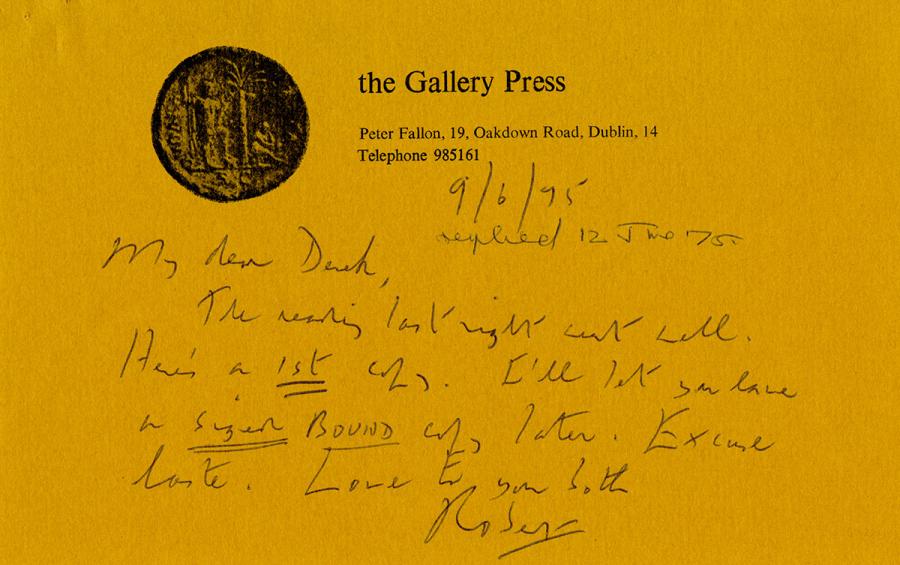 the Gallery Press
Peter Fallon, 19, Oakdown Road, Dublin, 14
Telephone 985161
9/6/75
replied 12 June '75
My dear Derek,
The reading last night went well.
Here's a 1st copy. I'll let you have
a signed BOUND copy later. Excuse
haste. Love to you both
Robert